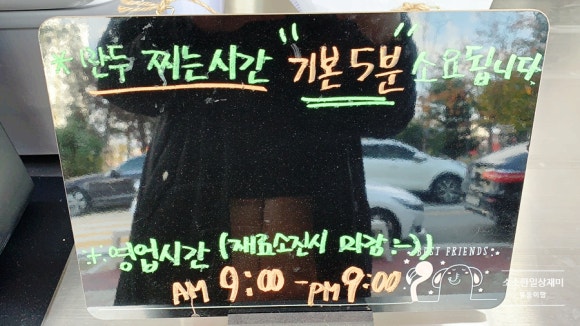 * 만두 찌는시간 "기본 5분" 소요됩니다
* 영업시간 (재료소진시 마감:-))
AM 9:00 - PM 9:00
BEST FRIENDS